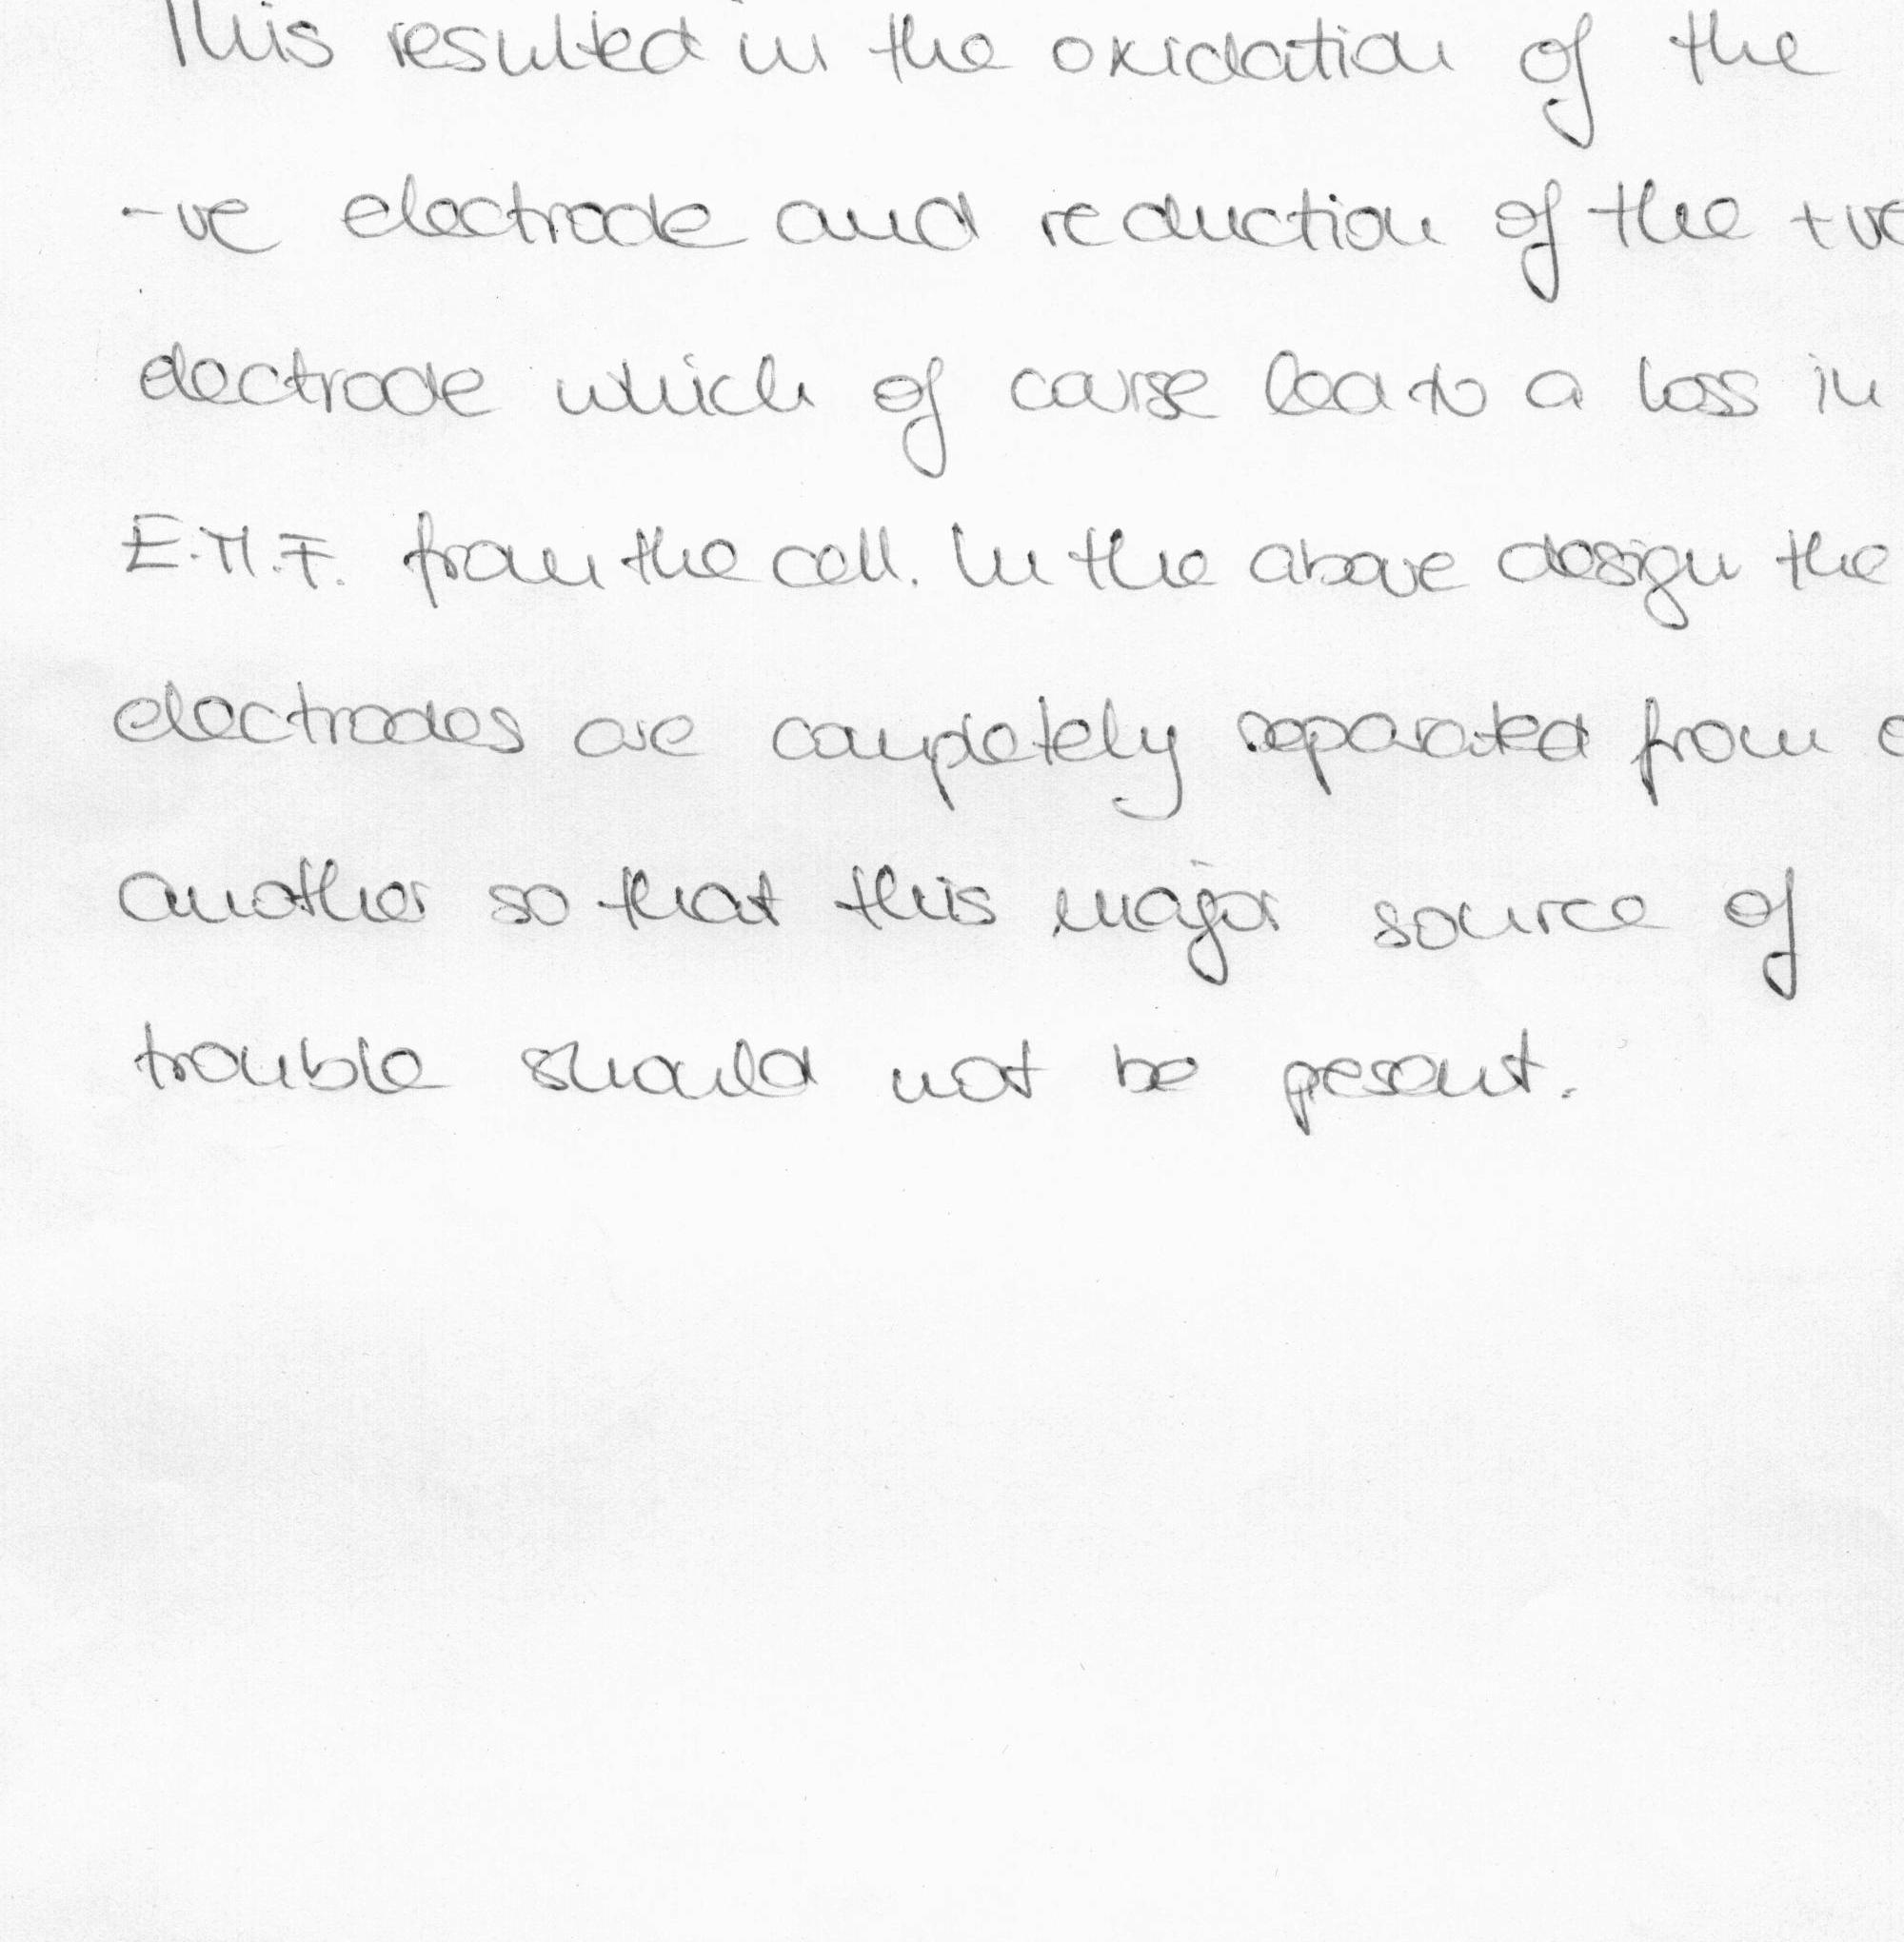 This resulted in the oxidation of the
-ve electrode and reduction of the +ve
electrode which of course lead to a loss in
E.M.F. from the cell. In the above design the
electrodes are completely separated from
another so that this major source of
trouble should not be present.